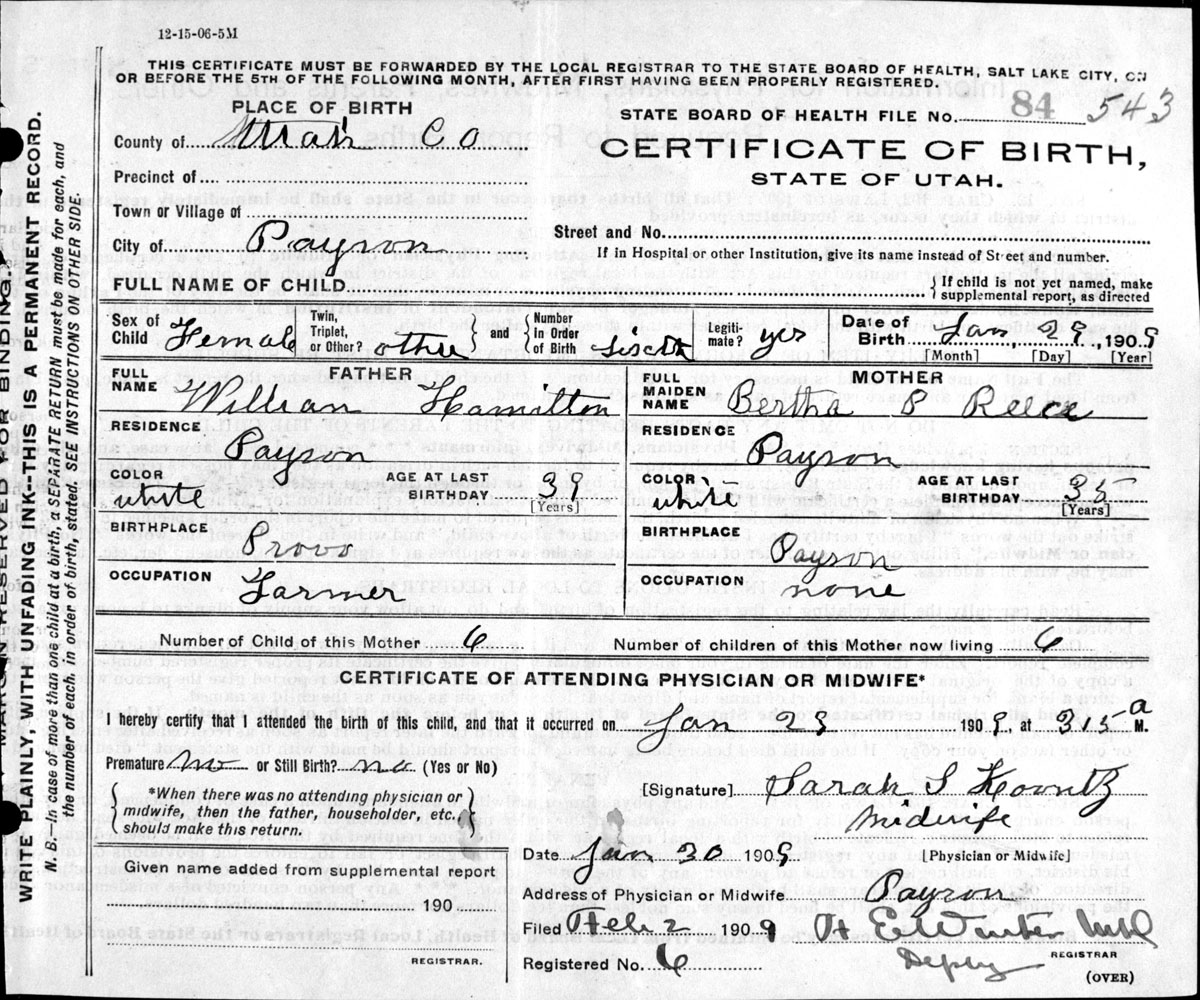 12-15-06-5M
THIS CERTIFICATE MUST BE FORWARDED BY THE LOCAL REGISTRAR TO THE STATE BOARD OF HEALTH, SALT LAKE CITY, ON
OR BEFORE THE 5TH OF THE FOLLOWING MONTH, AFTER FIRST HAVING BEEN PROPERLY REGISTERED.
PLACE OF BIRTH
STATE BOARD OF HEALTH FILE No. 84 543
County of Utah Co
CERTIFICATE OF BIRTH,
STATE OF UTAH.
Precinct of
Town or Village of
Street and No.
City of Payson
If in Hospital or other Institution, give its name instead of Street and number.
FULL NAME OF CHILD
If child is not yet named, make supplemental report, as directed
Sex of Child Female Twin, Triplet, or Other? other and Number in Order of Birth Legitimate? yes Date of Birth Jan, 29, 1909
[Month] [Day] [Year]
FATHER
FULL NAME William Hamilton
RESIDENCE
Payson
COLOR white AGE AT LAST BIRTHDAY 39
[Years]
BIRTHPLACE
Provo
OCCUPATION
Farmer
MOTHER
FULL MAIDEN NAME Bertha P Reece
RESIDENCE
Payson
COLOR white AGE AT LAST BIRTHDAY 35
[Years]
BIRTHPLACE
Payson
OCCUPATION
none
Number of Child of this Mother 6 Number of children of this Mother now living 6
CERTIFICATE OF ATTENDING PHYSICIAN OR MIDWIFE*
I hereby certify that I attended the birth of this child, and that it occurred on Jan 29 1909, at 3.15 a M.
Premature no or Still Birth? no (Yes or No)
*When there was no attending physician or
midwife, then the father, householder, etc.
should make this return.
[Signature] Sarah S
midwife
[Physician or Midwife]
Date Jan 30 1909
Address of Physician or Midwife Payson
Given name added from supplemental report
190
REGISTRAR.
Filed Feb 2 1909 H E Winter MD
REGISTRAR
Deputy
Registered No. 6
(OVER)
MARGIN RESERVED FOR BINDING.
WRITE PLAINLY, WITH UNFADING INK-THIS IS A PERMANENT RECORD.
N. B.—In case of more than one child at a birth, a SEPARATE RETURN must be made for each, and
the number of each, in order of birth, stated. SEE INSTRUCTIONS ON OTHER SIDE.